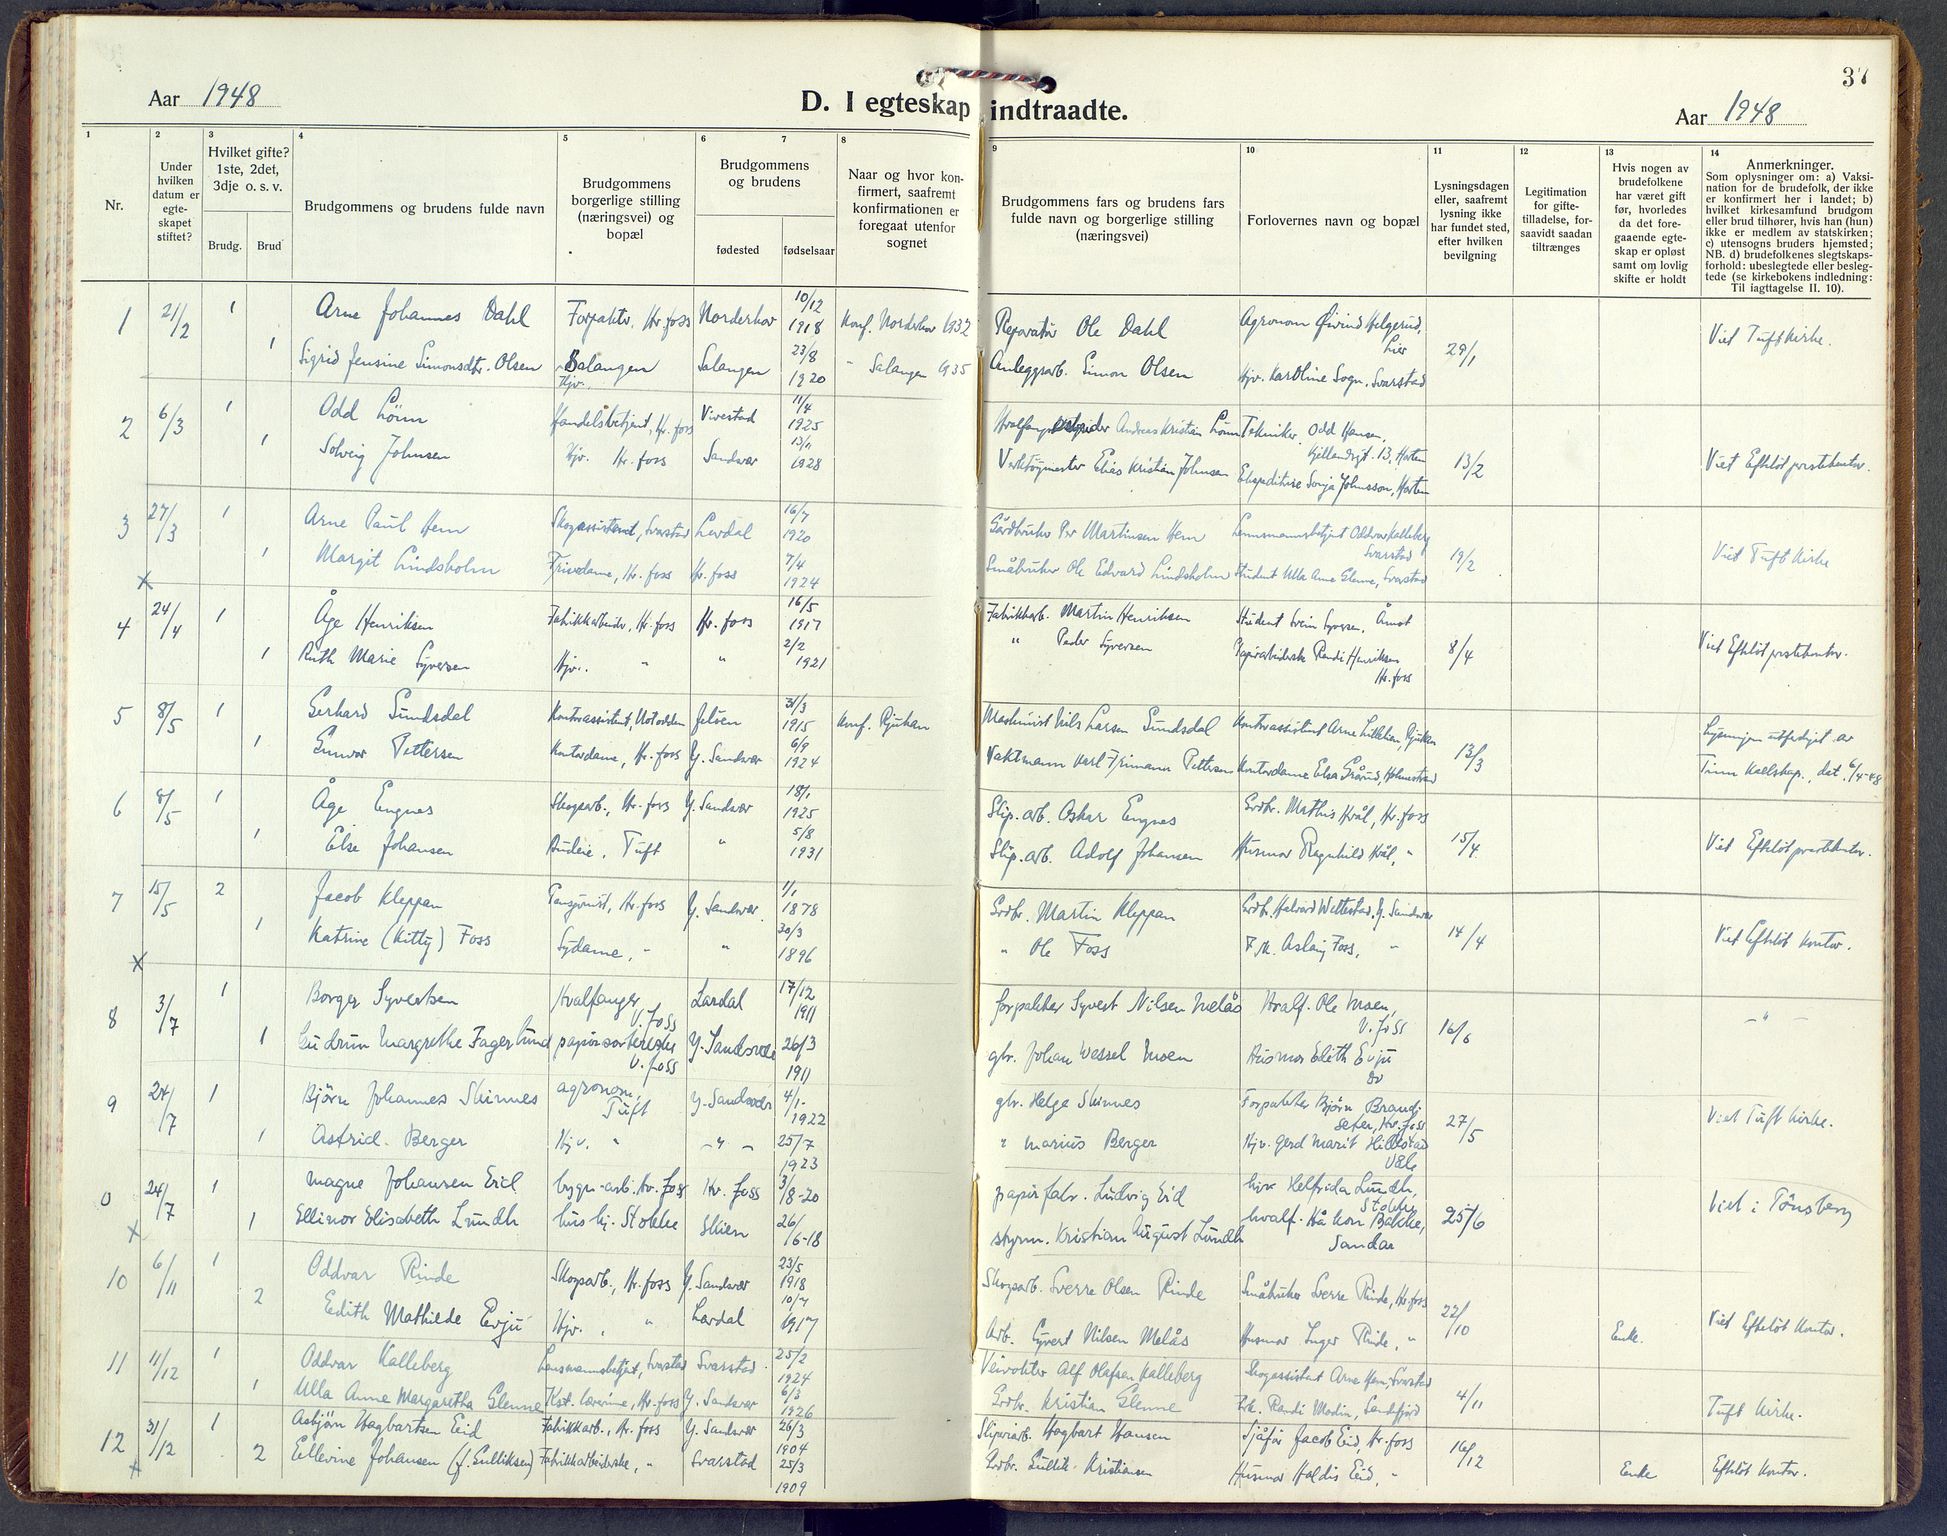 Aar 1948
D. I egteskap indtraadte.
Aar 1948
37
1 2 3 4 5 6 7 8 9 10 11 12 13 14
Nr.
Under hvilken datum er egte-skapet stiftet?
Hvilket gifte? 1ste, 2det, 3dje o. s. v.
Brudg. Brud
Brudgommens og brudens fulde navn
Brudgommens borgerlige stilling (næringsvei) og bopæl
Brudgommens og brudens
fødested fødselsaar
Naar og hvor kon-firmert, saafremt konfirmationen er foregaat utenfor sognet
Brudgommens fars og brudens fars fulde navn og borgerlige stilling (næringsvei)
Forlovernes navn og bopæl
Lysningsdagen eller, saafremt lysning ikke har fundet sted, efter hvilken bevilgning
Legitimation for gifte-tilladelse, for-saavidt saadan tiltrænges
Hvis nogen av brudefolkene har været gift før, hvorledes da det fore-gaaende egte-skap er opløst samt om lovlig skifte er holdt
Anmerkninger.
Som oplysninger om: a) Vaksi-nation for de brudefolk, der ikke er konfirmert her i landet; b) hvilket kirkesamfund brudgom eller brud tilhører, hvis han (hun) ikke er medlem av statskirken; c) utensogns bruders hjemsted; NB. d) brudefolkenes slegtskaps-forhold: ubeslegtede eller besleg-tede (se kirkebokens indledning: Til iagttagelse II. 10).
1 21/2 1 Arne Johannes Dahl Forpakter, Hv. foss Norderhov 10/12 1918 Konf. Norderhov 1932 Reparatør Ole Dahl Agronom Øivind Helgerud, Lier 29/1 Viet Tuft Kirke.
1 Sigrid Jensine Simonsdtr. Olsen Salangen Hjv. Salangen 23/8 1920 " Salangen 1935 Anleggsarb. Simon Olsen Hjv. Karoline Sogn, Svarstad
2 6/3 1 Odd Lønn Handelsbetjent, Hv. foss Vivestad 11/4 1925 Andreas Kristian Lønn Tekniker Odd Hansen, Kjellandsgt. 13, Horten 13/2 Viet Efteløt prestekontor.
1 Solveig Johnsen Hjv. Hv. foss Sandsvær 13/11 1928 Verktøymester Elias Kristian Johnsen Ekspeditrise Sonja Johnsson, Horten
3 27/3 1 Arne Paul Hem Skogassistent, Svarstad Lardal 16/7 1920 Gårdbruker Per Martinsen Hem Lensmannsbetjent Oddvar Kalleberg Svarstad 19/2 Viet Tuft Kirke
x 1 Margit Lindsholm Frisedame, Hv. foss Hv. foss 7/4 1924 Småbruker Ole Edvard Lindsholm Student Ulla Anne Glenne, Svarstad
4 24/4 1 Åge Henriksen Fabrikkarbeider, Hv. foss Hv. foss 16/5 1917 Fabrikkarb. Martin Henriksen Student Svein Syversen, Åmot 8/4 Viet Efteløt prestekontor.
1 Ruth Marie Syversen Hjv. " " 2/2 1921 " Peder Syversen Papirarbeiderske Randi Henriksen Hv. foss
5 8/5 1 Gerhard Sundsdal Kontorassistent, Notodden Jeløen 31/3 1915 Konf. Rjukan Maskinist Nils Larsen Sundsdal Kontorassistent Arne Lilletien, Rjukan 13/3 Lysningen utferdiget av
1 Gunvor Pettersen Kontordame, Hv. foss Y. Sandsvær 6/9 1924 Vaktmann Karl Frimann Pettersen Kontordame Elsa Grårud, Holmestrand Tinn Kallskap., dat. 6/4-48
6 8/5 1 Åge Engnes Skogsarb., Hv. foss Y. Sandsvær 18/1 1925 Slip. arb. Oskar Engnes Grdbr. Mathis Kvål, Hv. foss 15/4 Viet Efteløt prestekontor.
1 Else Johansen Budeie, Tuft " 5/8 1931 Slip. arb. Adolf Johansen Husmor Ragnhild Kvål, "
7 15/5 2 Jacob Kleppan Pensjonist, Hv. foss Y. Sandsvær 1/1 1878 Grdbr. Martin Kleppan Grdbr. Halvard Wettestad, Y. Sandsvær 14/4 Viet Efteløt Kontor.
x 1 Katrine (Kitty) Foss Sydame, " " 30/3 1896 " Ole Foss Frk. Aslaug Foss, "
8 3/7 1 Borger Syvertsen Hvalfanger V. foss Lardal 17/12 1911 forpakter Syvert Nilsen Melås Hvalf. Ole Moen, V. foss 16/6 — " —
1 Gudrun Margrethe Fagerlund papirsorterske V. foss Y. Sandsvær 26/3 1911 gbr. Johan Wessel Moen Husmor Edith Evju do
9 24/7 1 Bjørn Johannes Skinnes agronom, Tuft Y. Sandsvær 4/1- 1922 gbr. Helge Skinnes Forpakter Bjørn Brandi seter, Hv. foss 27/5 Viet Tuft Kirke.
1 Astrid Berger Hjv. " — " — 25/7 1923 " Marius Berger Hjv. Gerd Marit Hillestad Våle
0 24/7 1 Magne Johansen Eid bygn-arb. Hv. foss Hv. foss 3/8-20 papirfabr. Ludvig Eid hjv Helfrida Lundh, Stokke 25/6 Viet i Tønsberg
x 1 Ellinor Elisabeth Lundh hush. Stokke Skien 26/6-18 styrm. Kristian August Lundh hvalf. Håkon Bakke, Sandar
10 6/11 1 Oddvar Rinde Skogsarb., Hv. foss Y. Sandsvær 23/5 1918 Skogsarb. Sverre Olsen Rinde Småbruker Sverre Rinde, Hv. foss 22/10 Viet Efteløt Kontor.
2 Edith Mathilde Evju Hjv. , " Lardal 10/7 1917 Arb. Syvert Nilsen Melås Husmor Inger Rinde, " Enke.
11 11/12 1 Oddvar Kalleberg Lensmannsbetjent, Svarstad Svarstad 25/2 1924 Veivokter Alf Olafsen Kalleberg Skogassistent Arne Hem, Svarstad 4/11 Tuft Kirke.
1 Ulla Anne Margaretha Glenne Kst. lærerinne, Hv. foss Y. Sandsvær 6/3 1926 Grdbr. Kristian Glenne Frk. Randi Modin, Sandefjord
12 31/12 1 Asbjørn Hagbartsen Eid Fabrikkarb., Hv. foss Y. Sandsvær 26/3 1904 Sliperiarb. Hagbart Hansen Sjåfør Jacob Eid, Hv. foss 16/12 Efteløt Kontor.
x 2 Ellevine Johansen (f. Gulliksen) Fabrikkarbeiderske, " Svarstad 25/3 1909 Grdbr. Gullik Kristiansen Husmor Haldis Eid, " Enke